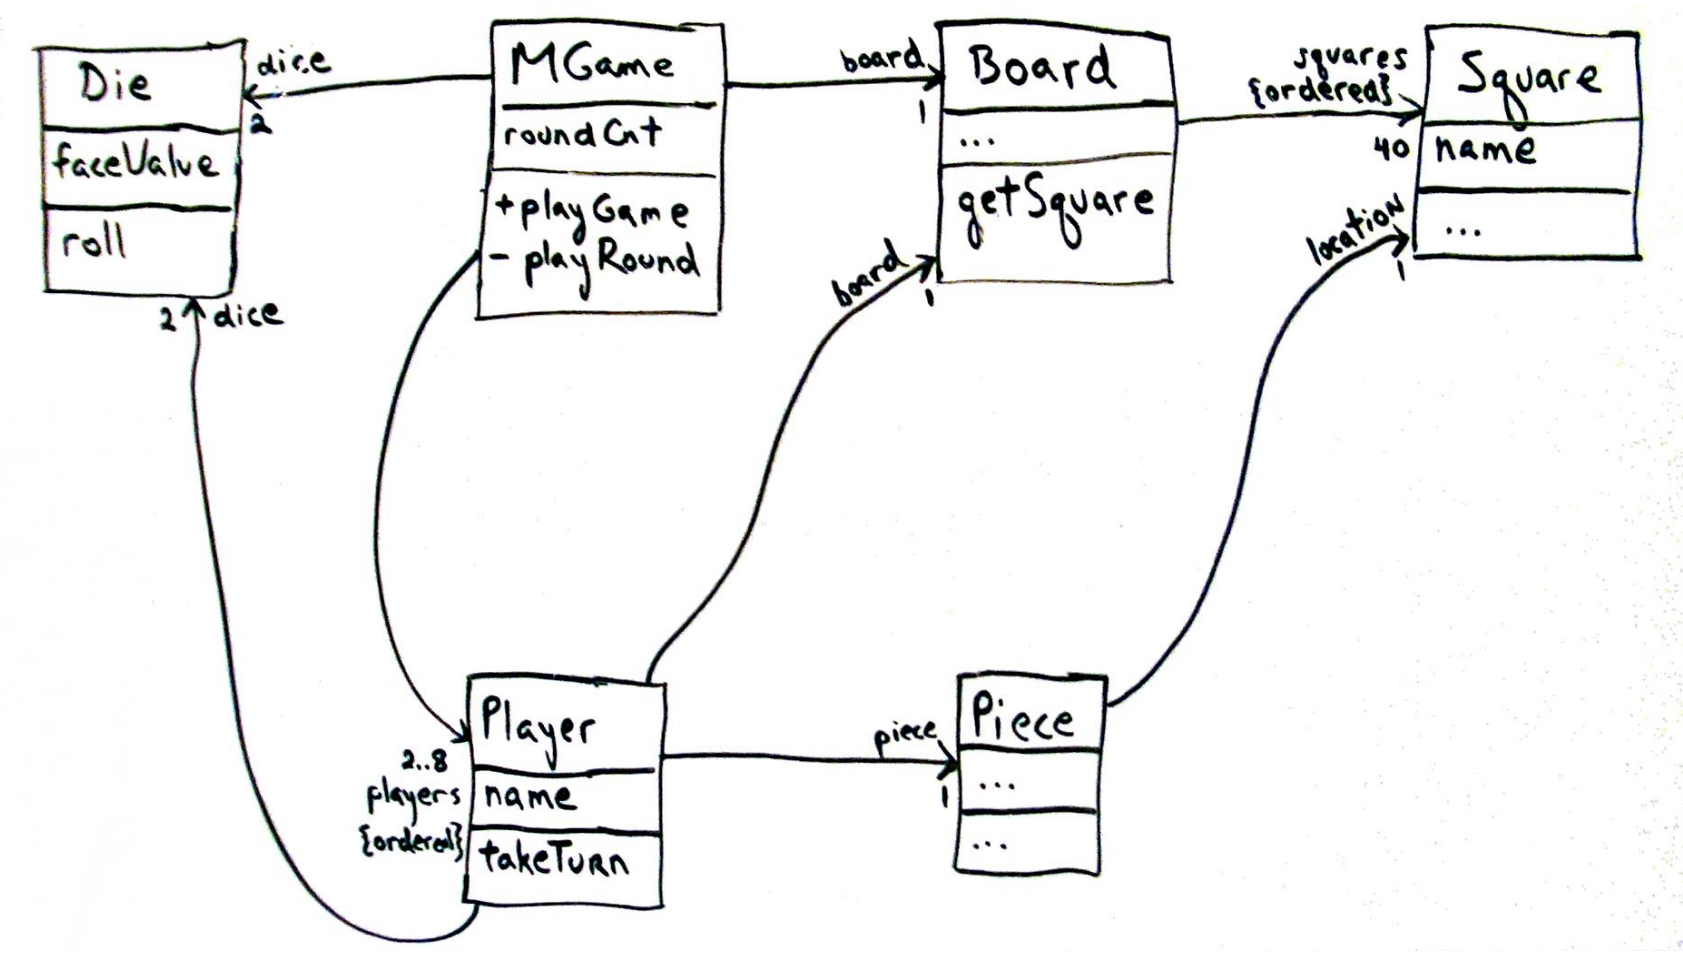 Die
faceValue
roll
dice
2
2 dice
MGame
roundCnt
+playGame
- playRound
board
1
Board
...
getSquare
board
1
squares
{ordered}
40
Square
name
...
location
1
2..8
players
{ordered}
Player
name
takeTurn
piece
1
Piece
...
...